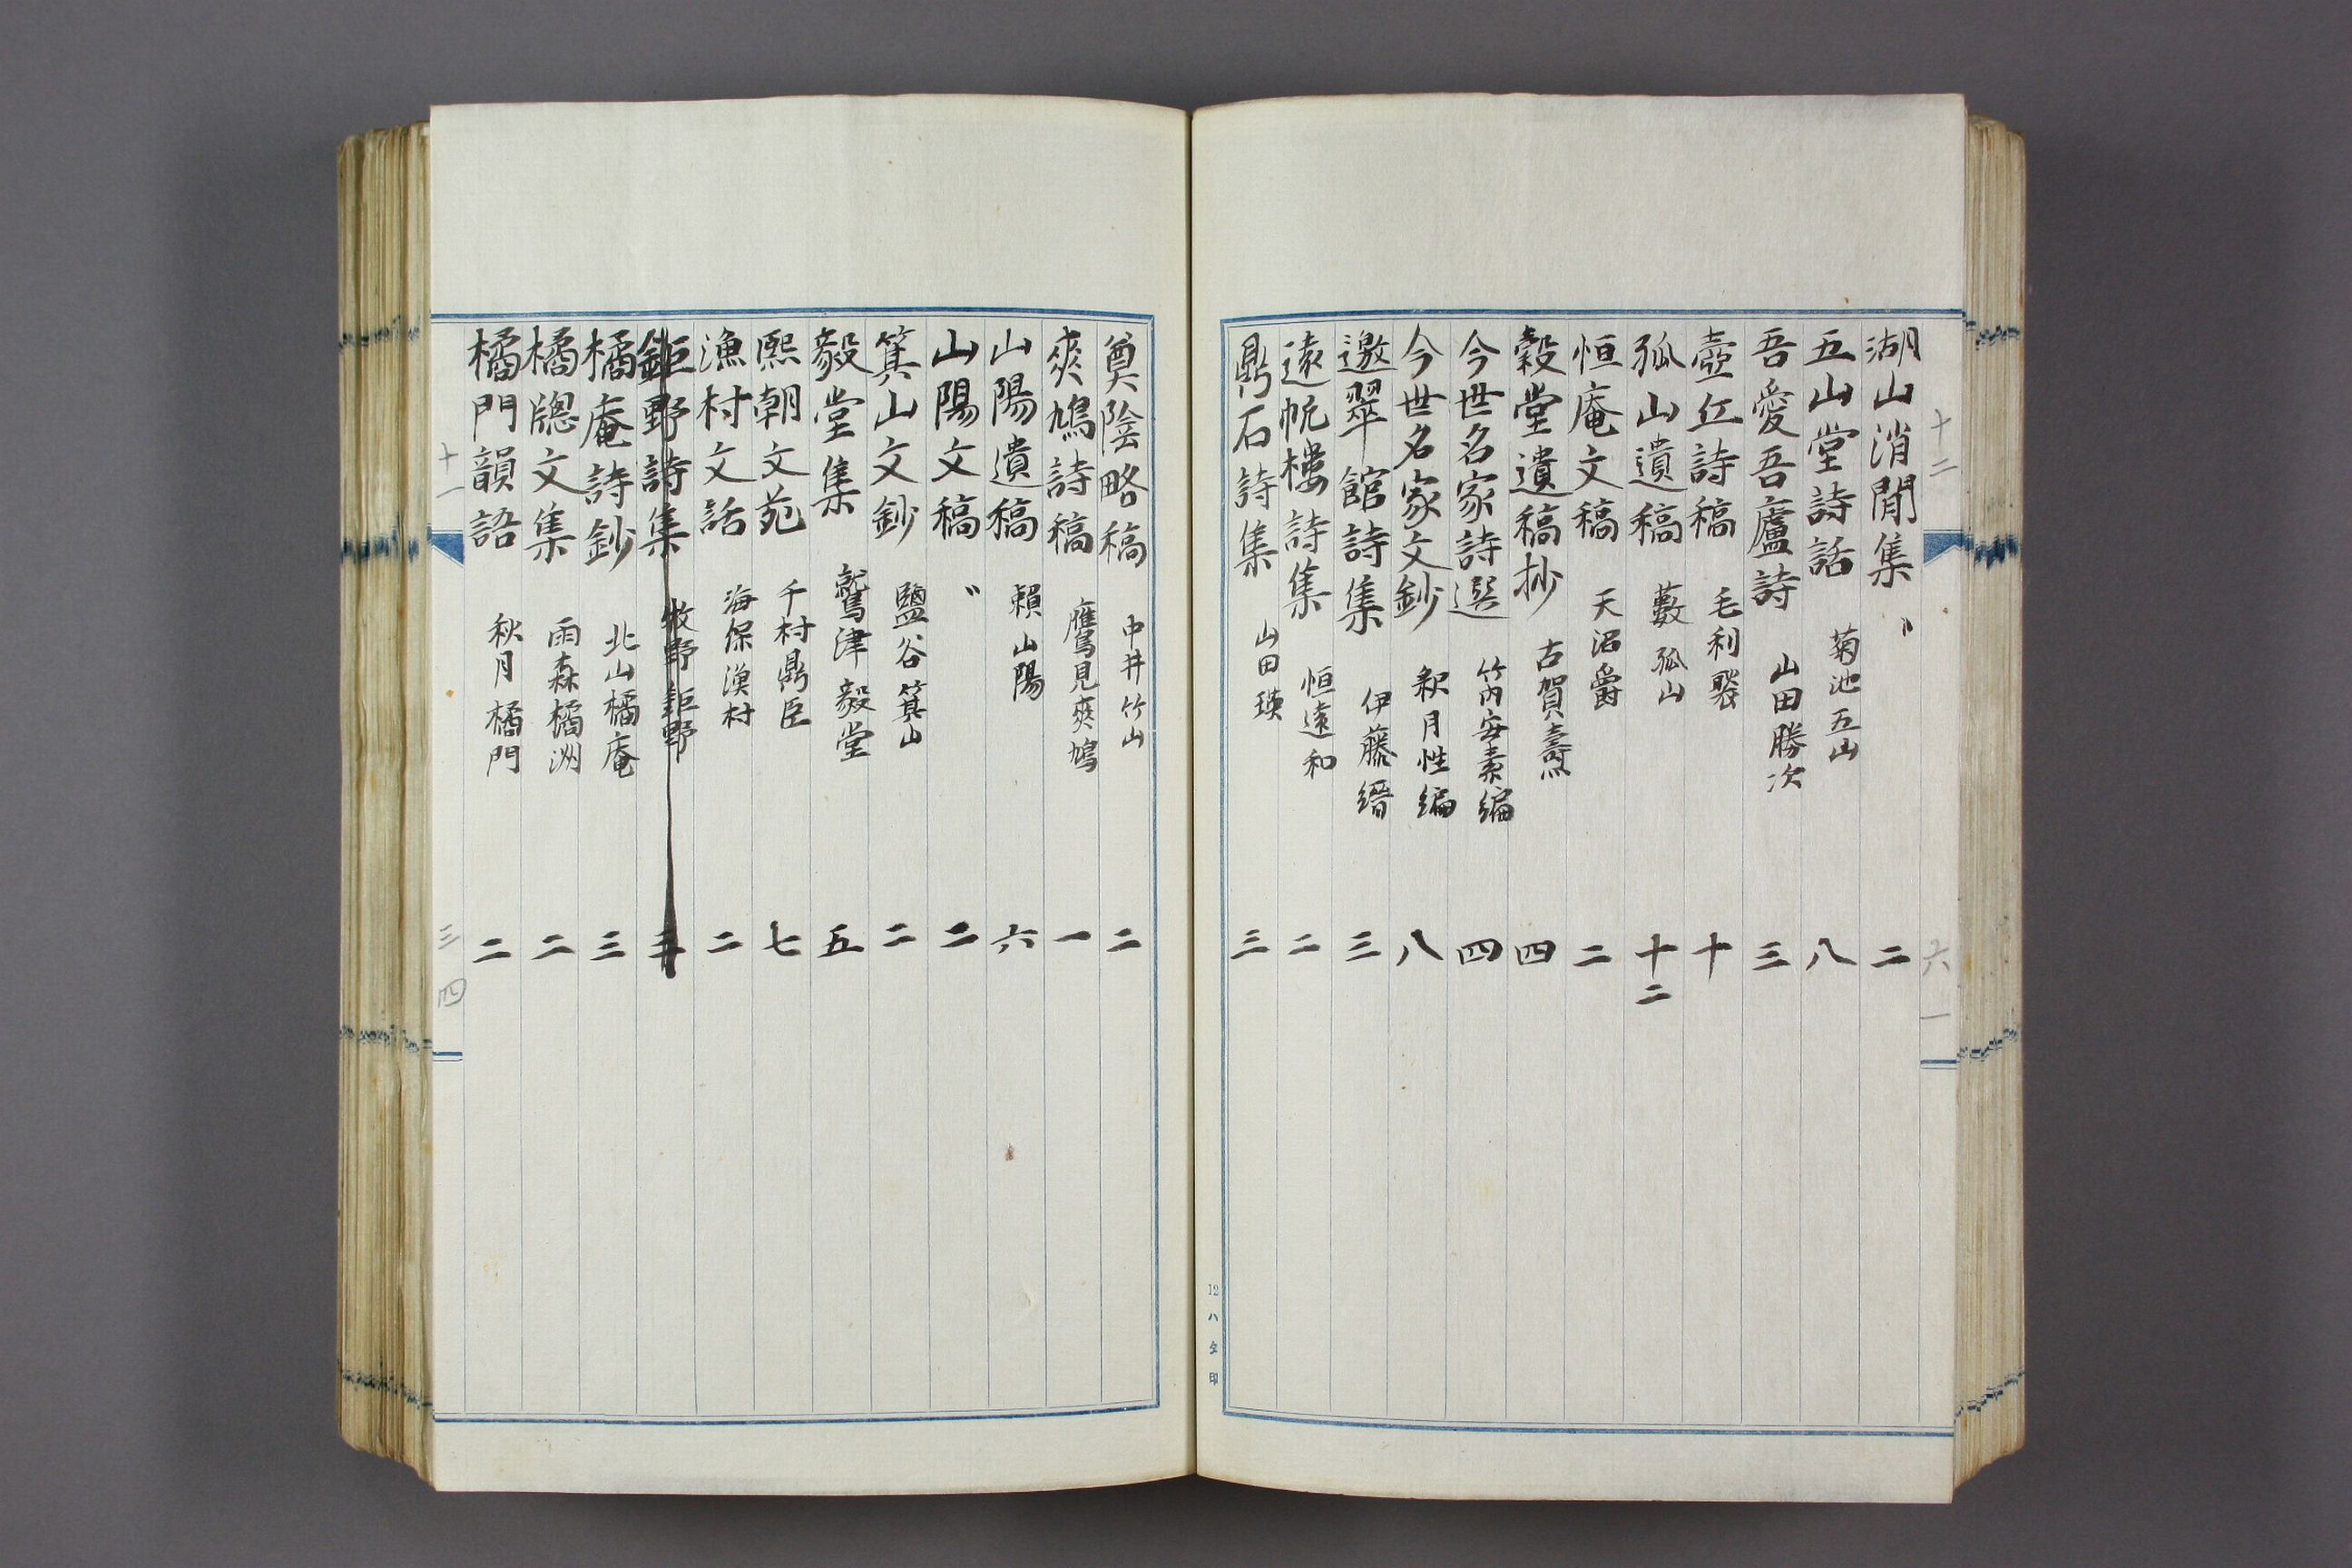 十二 六一
湖山消閒集 〃 二
五山堂詩話 菊池五山 八
吾愛吾廬詩 山田勝次 三
壺丘詩稿 毛利 十
孤山遺稿 藪孤山 十二
恒庵文稿 天沼爵 二
穀堂遺稿抄 古賀燾 四
今世名家詩選 竹内安素編 四
今世名家文鈔 釈月性編 八
邀翠館詩集 伊藤縉 三
遠帆樓詩集 恒遠和 二
鼎石詩集 山田瑛 三
12ハタ印
奠陰略稿 中井竹山 二
爽鳩詩稿 鷹見爽鳩 一
山陽遺稿 頼山陽 六
山陽文稿 〃 二
箕山文鈔 鹽谷箕山 二
毅堂集 鷲津毅堂 五
熙朝文苑 千村鼎臣 七
漁村文話 海保漁村 二
鉅野詩集 牧野鉅野 三
橘庵詩鈔 北山橘庵 三
橘窓文集 雨森橘洲 二
橘門韻語 秋月橘門 二
十一 三四